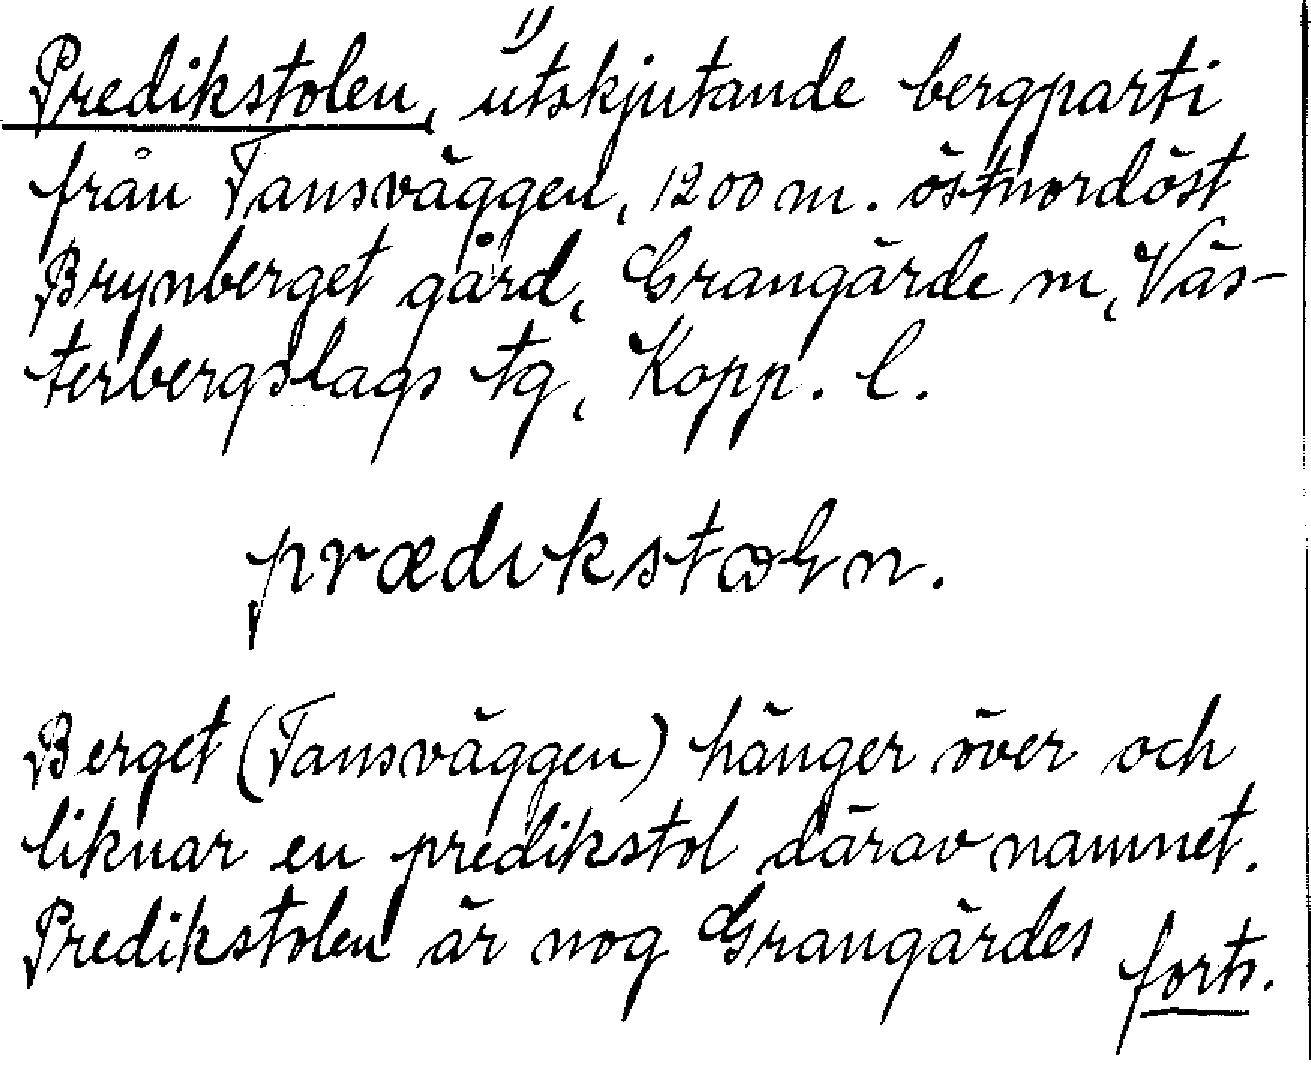 Predikstolen, utskjutande bergparti
från Tansväggen, 1200 m. östnordöst
Brynberget gård, Grangärde m, Väs-
terbergslags tg, Kopp. l.
prædıkstωln.
Berget (Tansväggen) hänger över och
liknar en predikstol därav namnet.
Predikstolen är nog Grangärdes
forts.